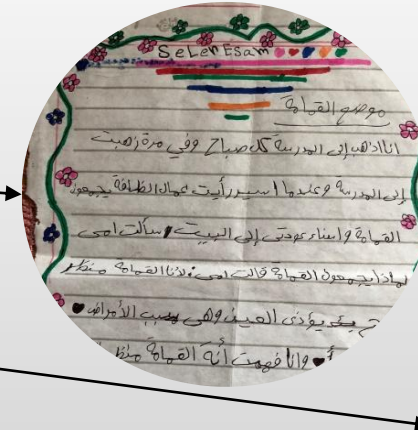 Selen Esam
موضع القمامة
انا اذهب إلى المدرسة كل صباح وفي مرة زهبت
إلى المدرسة وعندما اسير رأيت عمال النظافة يجمعون
القمامة و اسناء عودتي إلى البيت سألت امي
لماذا يجمعون القمامة قالت امي لأنا القمامة منظر
يؤذى العين وهي تسبب الأمراض
وانا فهمت أنة القمامة